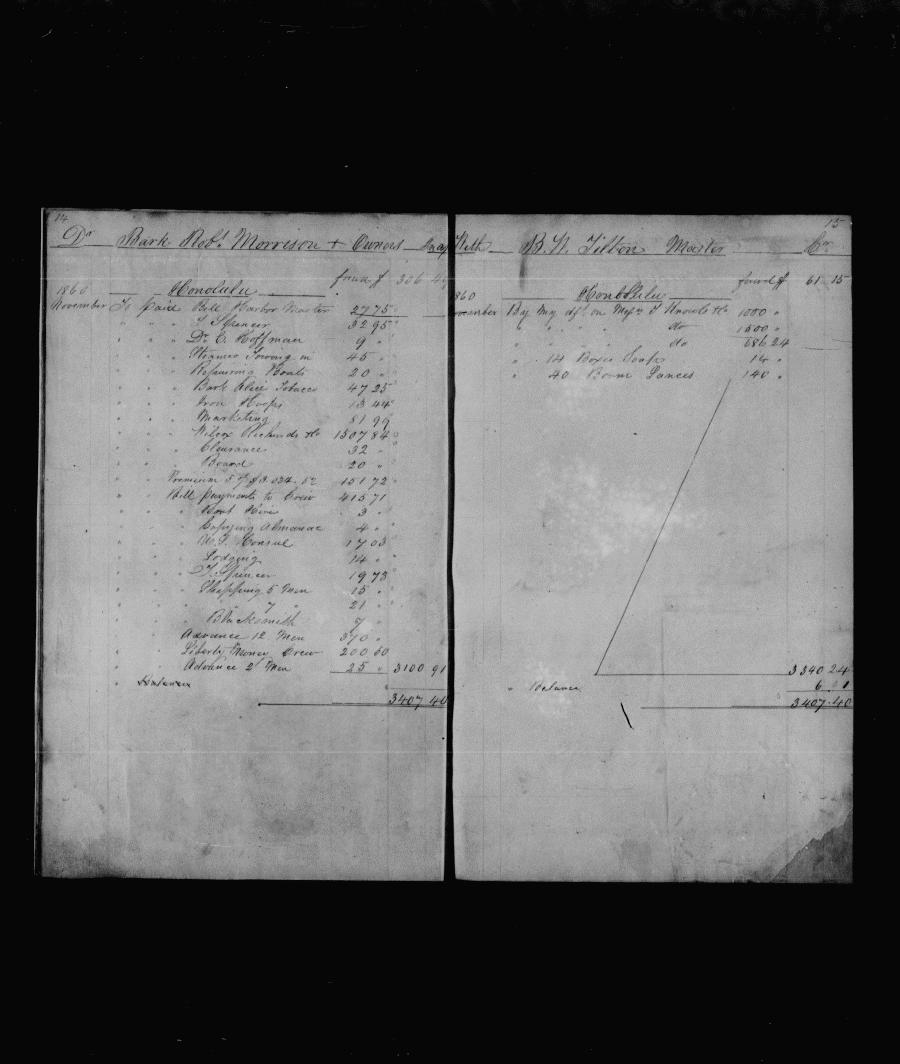 14
Dr Bark Robt Morrison + Owners In a/c
forwd $ 306 49
1860 Honolulu
November To paid Bill Harbor Master 27 75
" " " T Spencer 32 95
" " " Dr C. Hoffman 9 "
" " " Steamer Towing in 45 "
" " " Repairing Boats 20 "
" " " Bark Alice Tobacco 47 25
" " " Iron Hoops 13 44
" " " Marketing 51 99
" " " Wilcox Richards &Co 1507 84
" " " Clearance 32 "
" " " Board 20 "
" " " Premium 5 % $3.034.52 151 72
" " Bill payments to Crew 415 71
" " " Boat Hire 3 "
" " " Copying Almanac 4 "
" " " U.S. Consul 17 03
" " " Lodging 14 "
" " " T. Spencer 19 73
" " " Shipping 5 Men 15 "
" " " " 7 " 21 "
" " " Blacksmith 7 "
" " " Advance 12 Men 370 "
" " " Liberty Money Crew 200 50
" " " Advance 2 Men 25 " 3100 91
"
3407 40
15
With B. N. Tilton Master Cr
forwd $ 61 15
1860 Honolulu
November By my dft on Messrs T Knowles &Co 1000 "
" " " " " do 1500 "
" " do 686 24
" 14 Boxes Soap 14 "
" 40 Bomb Lances 140 "
3340 24
" Balance 6
3407.40